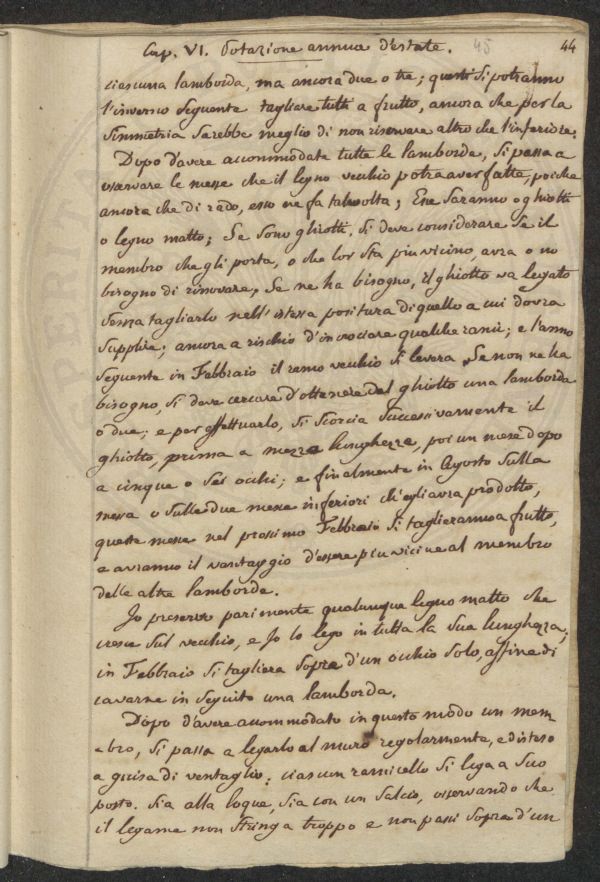 Cap. VI. Potazione annua d'estate. 45 44
ciascuna lamborda, ma ancora due o tre; questi si potranno
l'inverno seguente tagliare tutti a frutto, ancora che per la
Simmetria sarebbe meglio di non riservare altro che l'inferiore.
Dopo d'avere accommodate tutte le lamborde, si passa a
osservare le messe che il legno vecchio potrà aver fatte, poiche
ancora che di rado, esso ne fa talvolta; Esse saranno o ghiotti
o legno matto; Se sono ghiotti, si deve considerare se il
membro che gli porta, o che lor sta piu vicino, avra o no
bisogno di rinovare, Se ne ha bisogno, il ghiotto va legato
senza tagliarlo nell'istessa positura di quello a cui dovra
supplire; ancora a rischio d'incrociare qualche ramo; e l'anno
seguente in Febbraio il ramo vecchio si levera. Se non ne ha
bisogno, si deve cercare d'ottenere dal ghiotto una lamborda
o due; e per effettuarlo, si scorcia successivamente il
ghiotto, prima a mezza lunghezza, poi un mese dopo
a cinque o sei occhi; e finalmente in Agosto sulla
messa o sulle due messe inferiori ch'egli avra prodotto,
queste messe nel prossimo Febbraio si taglieranno a frutto,
e avranno il vantaggio d'essere piu vicine al membro
delle altre lamborde.
Io preservo parimente qualunque legno matto che
cresce sul vecchio, e Io lo lego in tutta la sua lunghezza;
in Febbraio si tagliera sopra d'un occhio solo, affine di
cavarne in seguito una lamborda.
Dopo d'avere accommodato in questo modo un mem-
-bro, si passa a legarlo al muro regolarmente, e disteso
a guisa di ventaglio; ciascun ramicello si lega a suo
posto. Sia alla loque, sia con un salcio, osservando che
il legame non stringa troppo e non passi sopra d'un